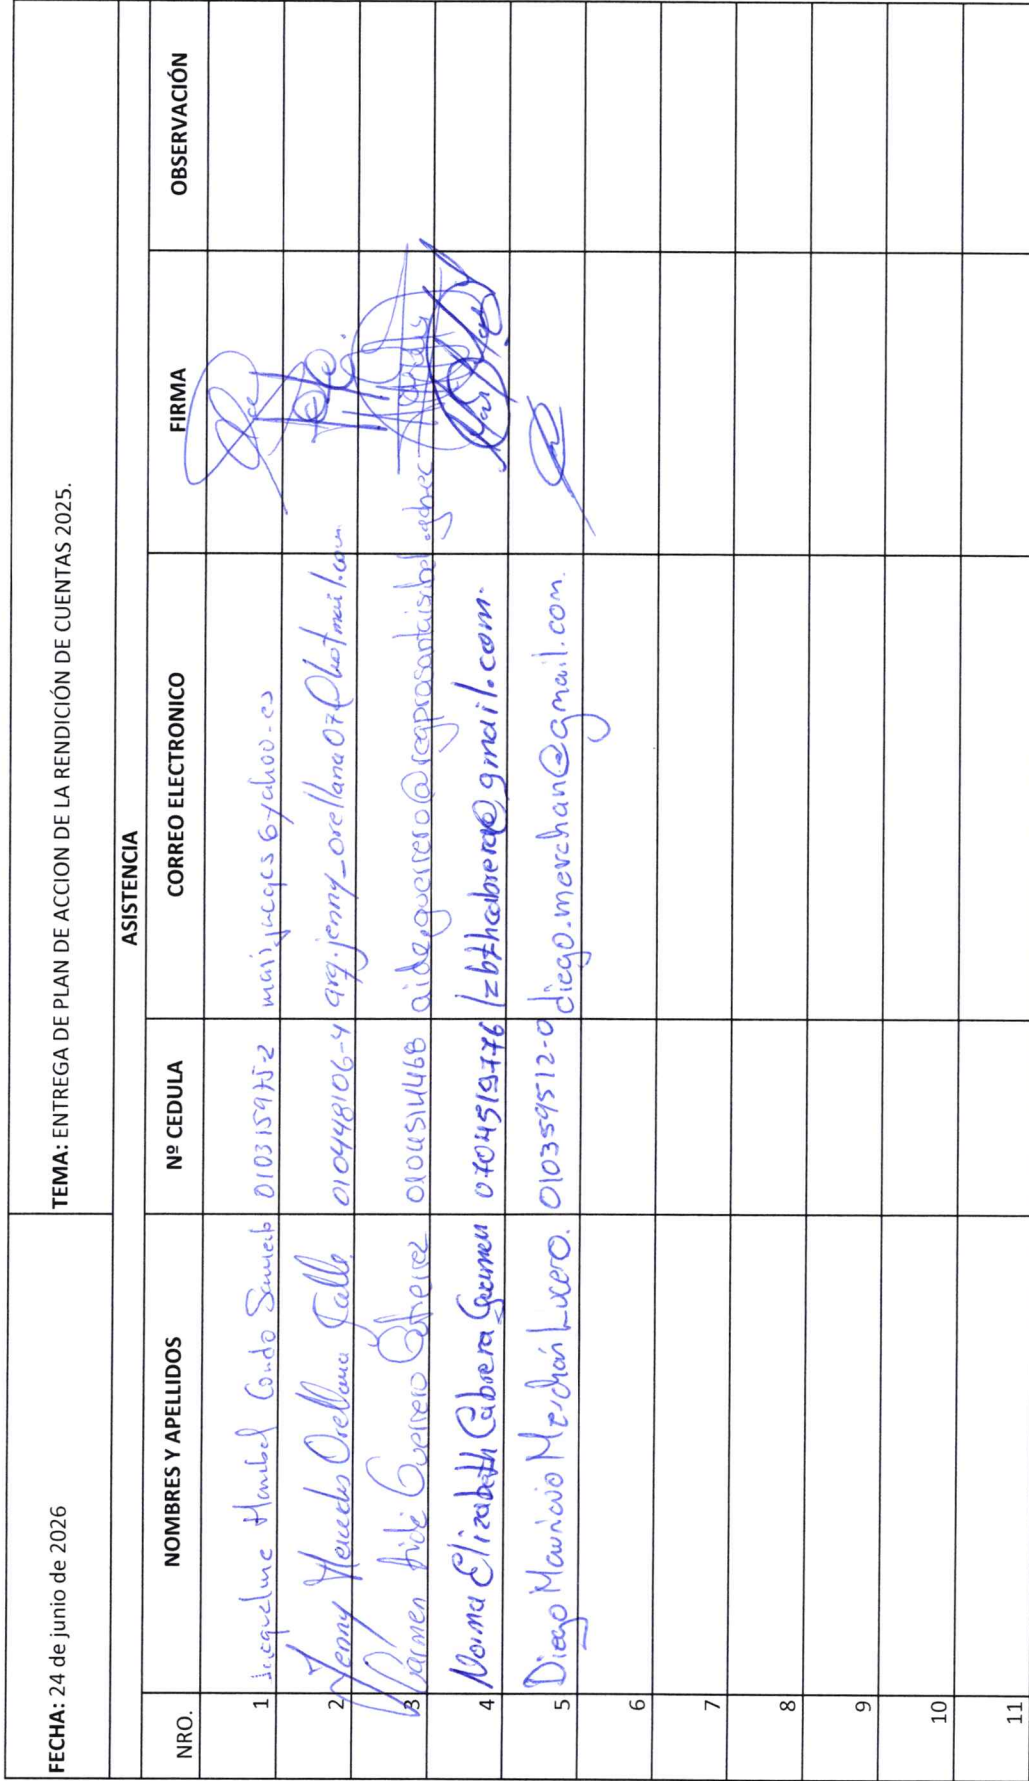 FECHA: 24 de junio de 2026 TEMA: ENTREGA DE PLAN DE ACCION DE LA RENDICIÓN DE CUENTAS 2025.
ASISTENCIA
NRO. NOMBRES Y APELLIDOS Nº CEDULA CORREO ELECTRONICO FIRMA OBSERVACIÓN
1 Jacqueline Maribel Condo
2 Jenny Mercedes Orellana Calle 010448106-4 arq.jenny_orellana07@hotmail.com
3 Carmen Aidé Guerrero
4 Norma Elizabeth Cabrera Guzman 0704519776 lzbthcabrera@gmail.com.
5 Diego Mauricio Merchán Lucero. 010359512-0 diego.merchan@gmail.com.
6
7
8
9
10
11